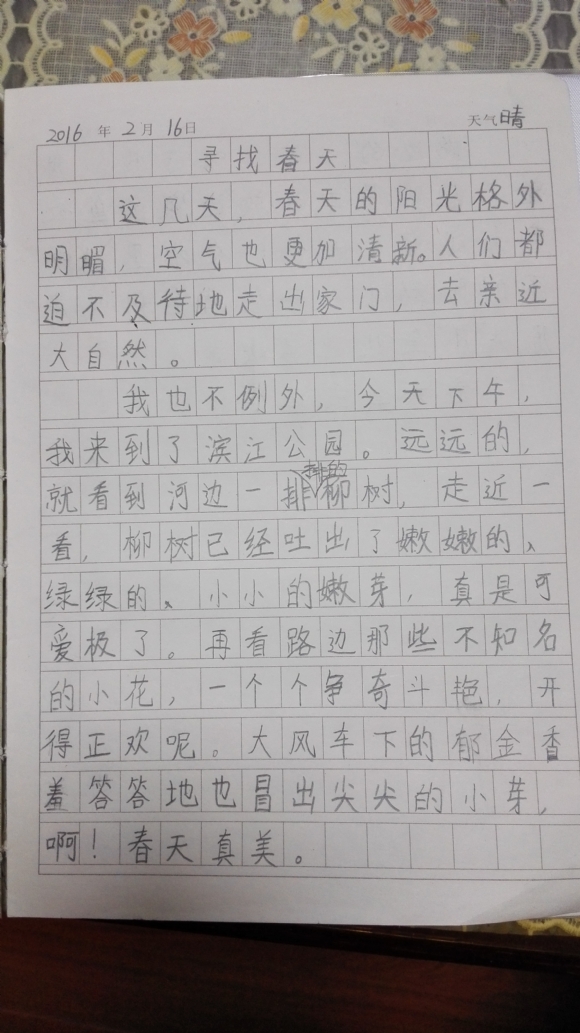 2016 年 2 月 16日 天气晴
寻找春天
这几天，春天的阳光格外
明媚，空气也更加清新。人们都
迫不及待地走出家门，去亲近
大自然。
我也不例外，今天下午，
我来到了滨江公园。远远的，
就看到河边一排排的柳树，走近一
看，柳树已经吐出了嫩嫩的、
绿绿的、小小的嫩芽，真是可
爱极了。再看路边那些不知名
的小花，一个个争奇斗艳，开
得正欢呢。大风车下的郁金香
羞答答地也冒出尖尖的小芽，
啊！春天真美。